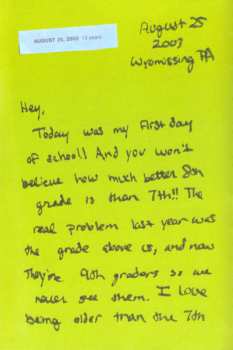 August 25
2003
Wyomissing PA
AUGUST 25, 2003 13 years
Hey,
Today was my first day
of school! And you won't
believe how much better 8th
grade is than 7th!! The
real problem last year was
the grade above us, and now
they're 9th graders so we
never see them. I love
being older than the 7th